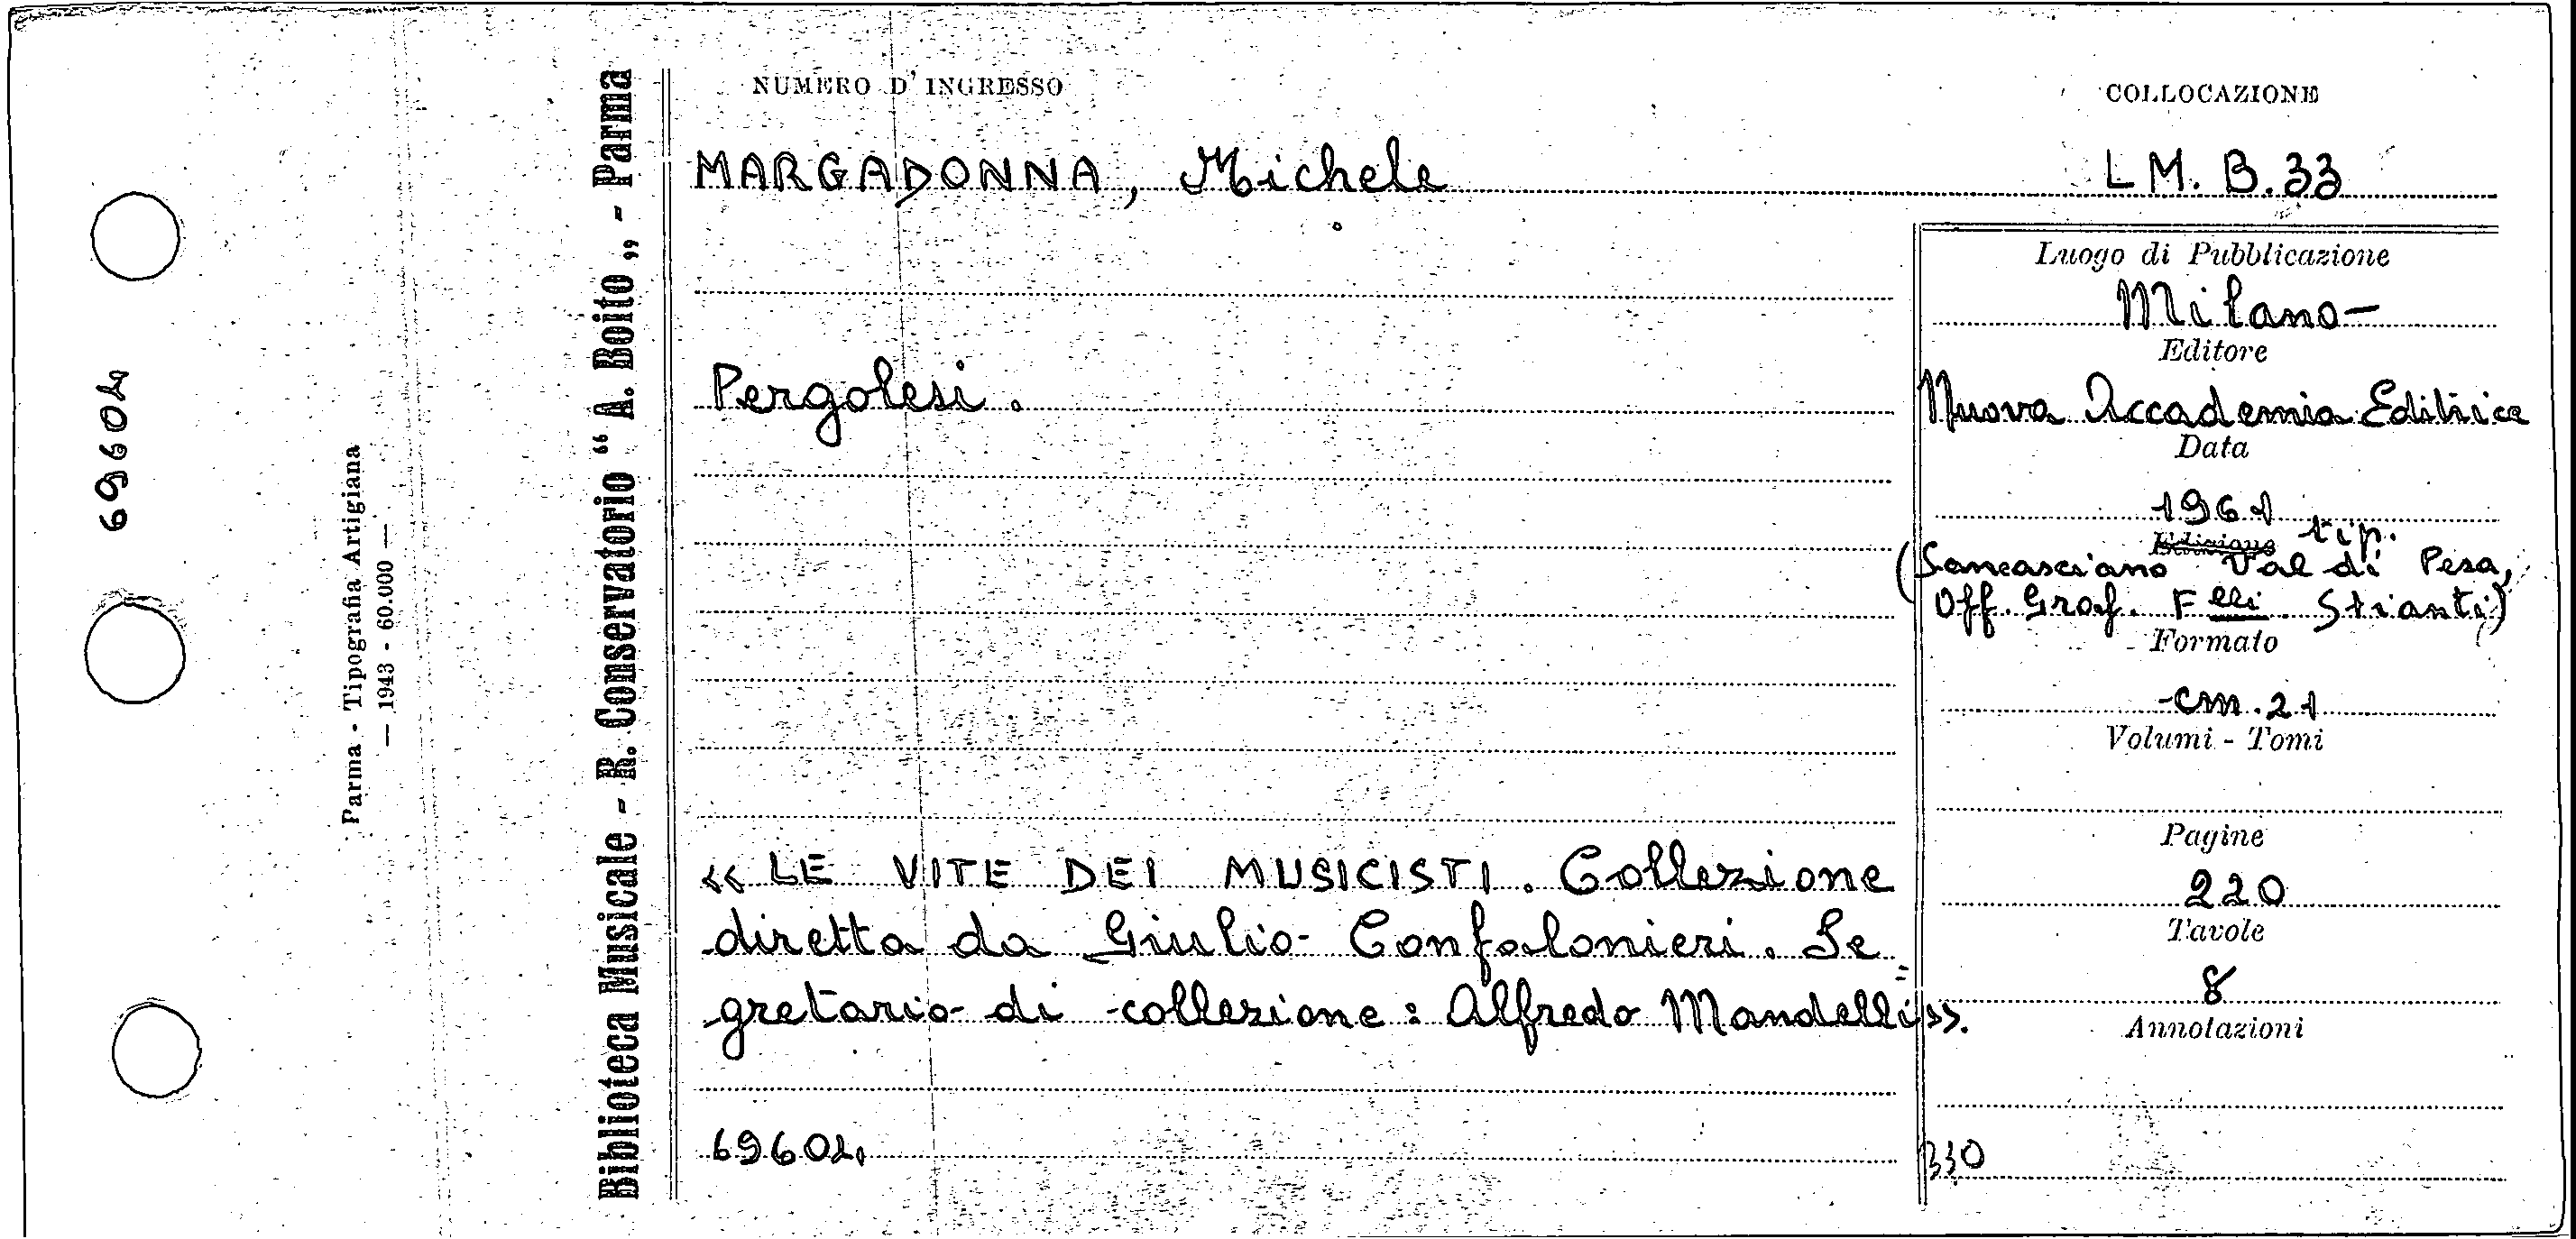 69602
Parma - Tipografia Artigiana
— 1943 - 60.000 —
Biblioteca Musicale - R. Conservatorio “ A. Boito „ - Parma
NUMERO D'INGRESSO
COLLOCAZIONE
MARGADONNA, Michele
L M. B.33
Luogo di Pubblicazione
Milano-
Editore
Pergolesi.
Nuova Accademia Editrice
Data
1961
Edizione tip.
(Sancasciano Val di Pesa,
Off. Graf. Flli. Stianti)
Formato
cm. 21
Volumi - Tomi
Pagine
220
Tavole
8
Annotazioni
« LE VITE DEI MUSICISTI. Collezione
diretta da Giulio Confalonieri. Se=
gretario di collezione: Alfredo Mandelli».
69602
330